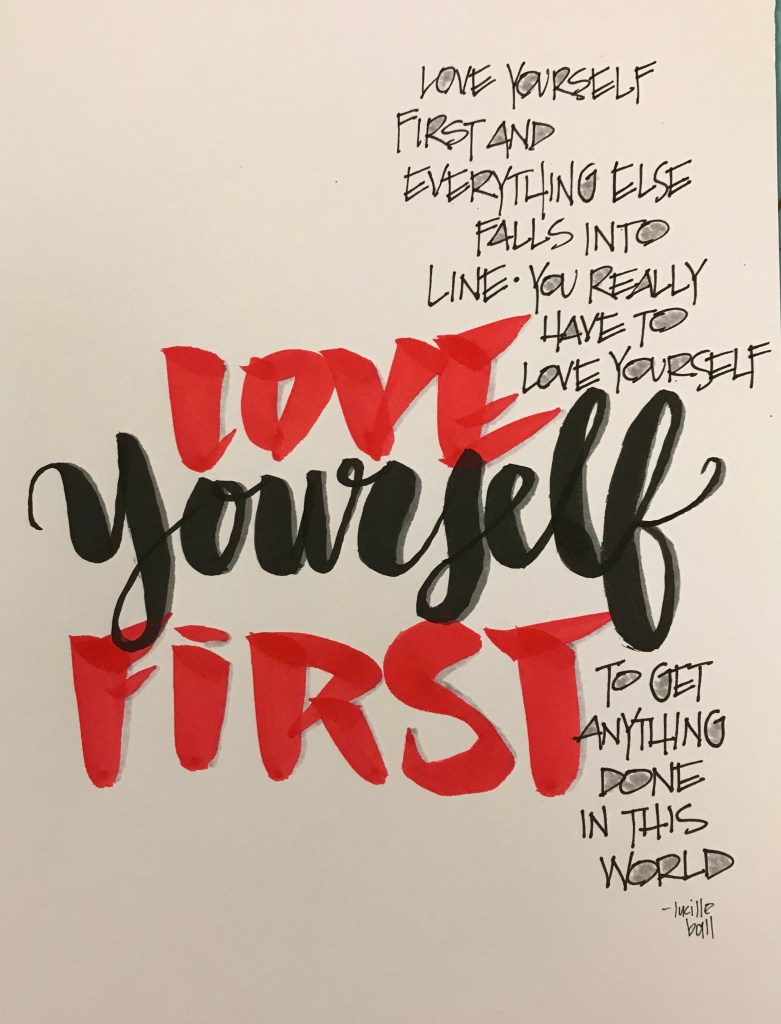 LOVE YOURSELF
FIRST AND
EVERYTHING ELSE
FALLS INTO
LINE · YOU REALLY
HAVE TO
LOVE YOURSELF
LOVE
yourself
FiRST
TO GET
ANYTHING
DONE
IN THIS
WORLD
-lucille
ball